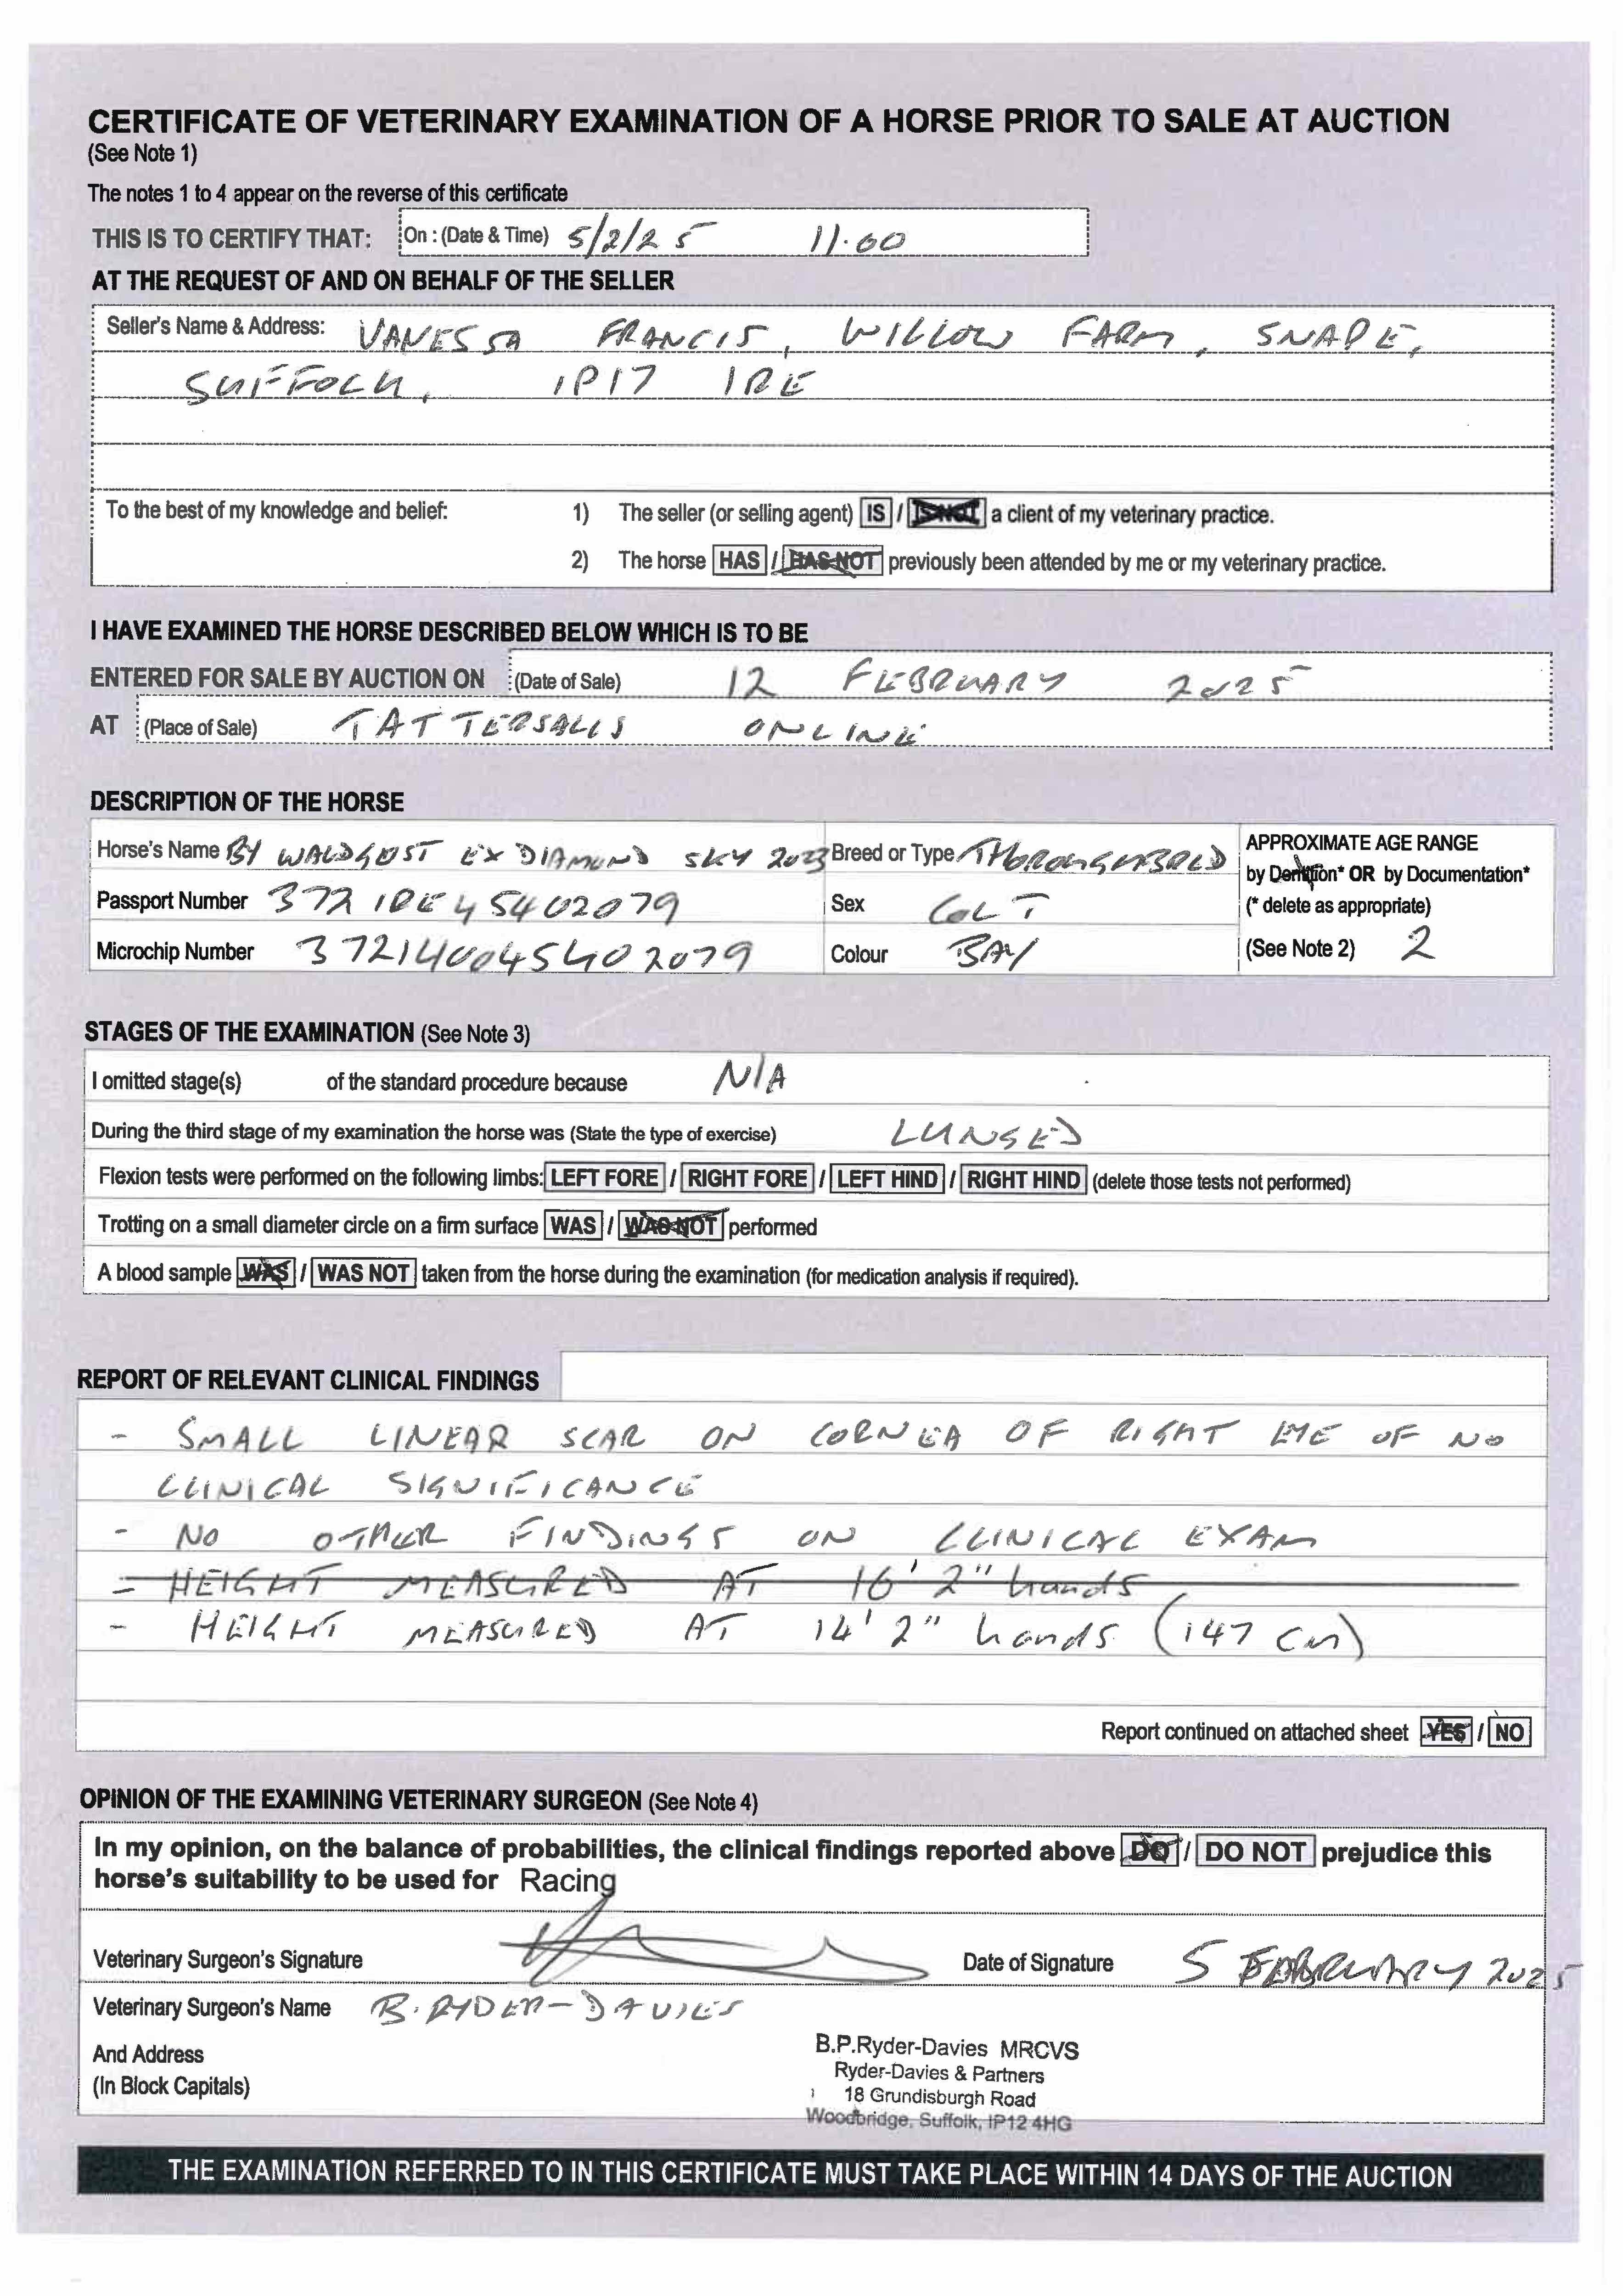 CERTIFICATE OF VETERINARY EXAMINATION OF A HORSE PRIOR TO SALE AT AUCTION
(See Note 1)
The notes 1 to 4 appear on the reverse of this certificate
THIS IS TO CERTIFY THAT: On : (Date & Time) 5/2/25 11.00
AT THE REQUEST OF AND ON BEHALF OF THE SELLER
Seller's Name & Address: VANESSA FRANCIS, WILLOW FARM, SNAPE,
SUFFOLK, IP17 1RE
To the best of my knowledge and belief: 1) The seller (or selling agent) IS / IS NOT a client of my veterinary practice.
2) The horse HAS / HAS NOT previously been attended by me or my veterinary practice.
I HAVE EXAMINED THE HORSE DESCRIBED BELOW WHICH IS TO BE
ENTERED FOR SALE BY AUCTION ON (Date of Sale) 12 FEBRUARY 2025
AT (Place of Sale) TATTERSALLS ONLINE
DESCRIPTION OF THE HORSE
Horse's Name BY WALDGEIST EX DIAMOND SKY 2023 Breed or Type THOROUGHBRED APPROXIMATE AGE RANGE
by Dentition* OR by Documentation*
Passport Number 372 IRE 45402079 Sex COLT (* delete as appropriate)
Microchip Number 372140045402079 Colour BAY (See Note 2) 2
STAGES OF THE EXAMINATION (See Note 3)
I omitted stage(s) of the standard procedure because N/A
During the third stage of my examination the horse was (State the type of exercise) LUNGED
Flexion tests were performed on the following limbs: LEFT FORE / RIGHT FORE / LEFT HIND / RIGHT HIND (delete those tests not performed)
Trotting on a small diameter circle on a firm surface WAS / WAS NOT performed
A blood sample WAS / WAS NOT taken from the horse during the examination (for medication analysis if required).
REPORT OF RELEVANT CLINICAL FINDINGS
- SMALL LINEAR SCAR ON CORNEA OF RIGHT EYE OF NO
CLINICAL SIGNIFICANCE
- NO OTHER FINDINGS ON CLINICAL EXAM
- HEIGHT MEASURED AT 16' 2" hands
- HEIGHT MEASURED AT 14' 2" hands (147 cm)
Report continued on attached sheet YES / NO
OPINION OF THE EXAMINING VETERINARY SURGEON (See Note 4)
In my opinion, on the balance of probabilities, the clinical findings reported above DO / DO NOT prejudice this
horse's suitability to be used for Racing
Veterinary Surgeon's Signature Date of Signature 5 FEBRUARY 2025
Veterinary Surgeon's Name B. RYDER-DAVIES
And Address
(In Block Capitals)
B.P.Ryder-Davies MRCVS
Ryder-Davies & Partners
18 Grundisburgh Road
Woodbridge, Suffolk, IP12 4HG
THE EXAMINATION REFERRED TO IN THIS CERTIFICATE MUST TAKE PLACE WITHIN 14 DAYS OF THE AUCTION